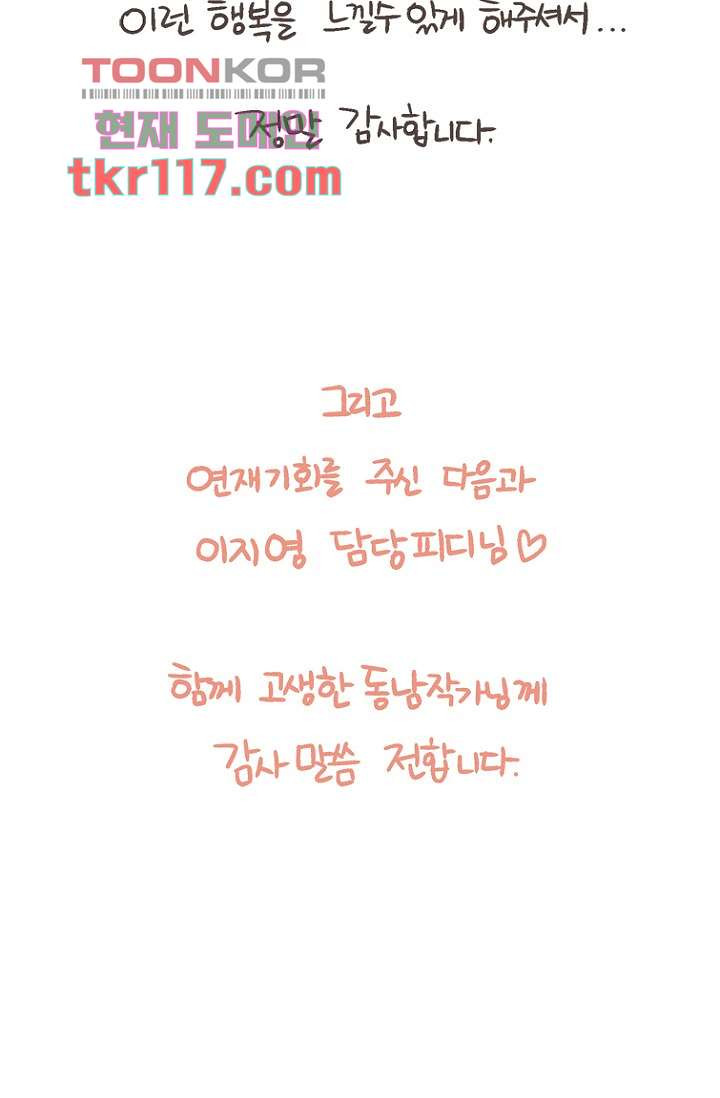 이런 행복을 느낄수 있게 해주셔서...
TOONKOR
현재 도메인
정말 감사합니다.
tkr117.com
그리고
연재기회를 주신 다음과
이지영 담당피디님♡
함께 고생한 동남작가님께
감사 말씀 전합니다.